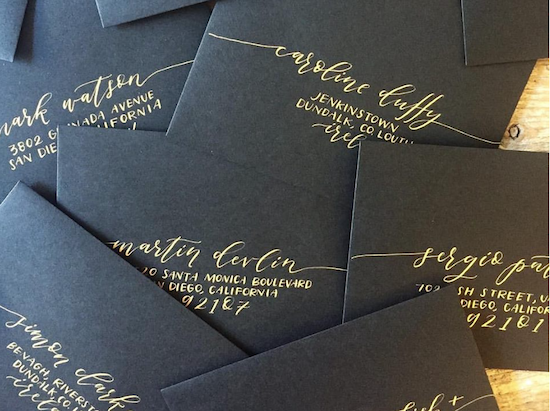 mark watson
3802 G NADA AVENUE
SAN DIE CALIFORNIA
caroline duffy
JENKINSTOWN
DUNDALK, CO. LOUTH
irel
martin devlin
70 SANTA MONICA BOULEVARD
SAN DIEGO, CALIFORNIA
92107
sergio pa
702 SH STREET, U
DIEGO, CALIFOR
92101
simon clark
BEVAGH, RIVERST
DUNDALK, CO.
irel
+